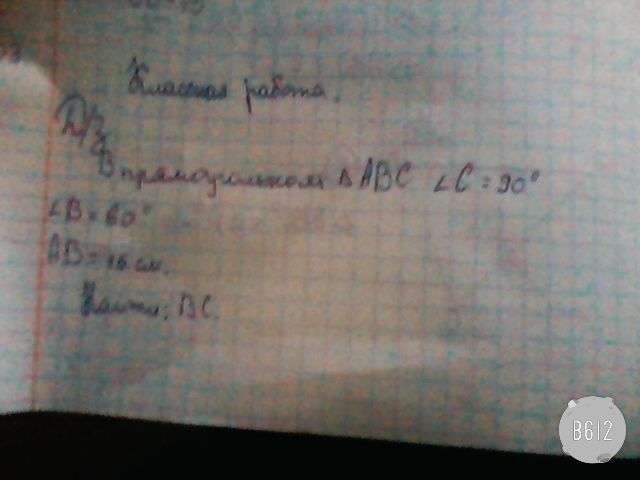 Классная работа.
Д/З
В прямоугольном ΔABC ∠C = 90°
∠B = 60°
AB = 16 см.
Найти: BC.
B612